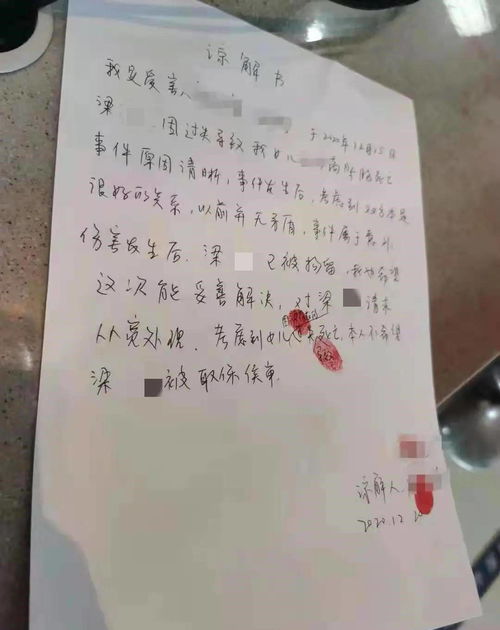 谅解书
我是受害人
梁 因过失导致我女儿 于2020年12月15日
事件原因清晰，事件发生后，考虑到双方本是
很好的关系，以前并无矛盾，事件属于意外，
伤害发生后，梁 已被拘留，我也希望
这次能妥善解决，对梁 请求
从宽处理．考虑到女儿 死亡，本人不希望
梁 被取保侯审．
谅解人
2020.12